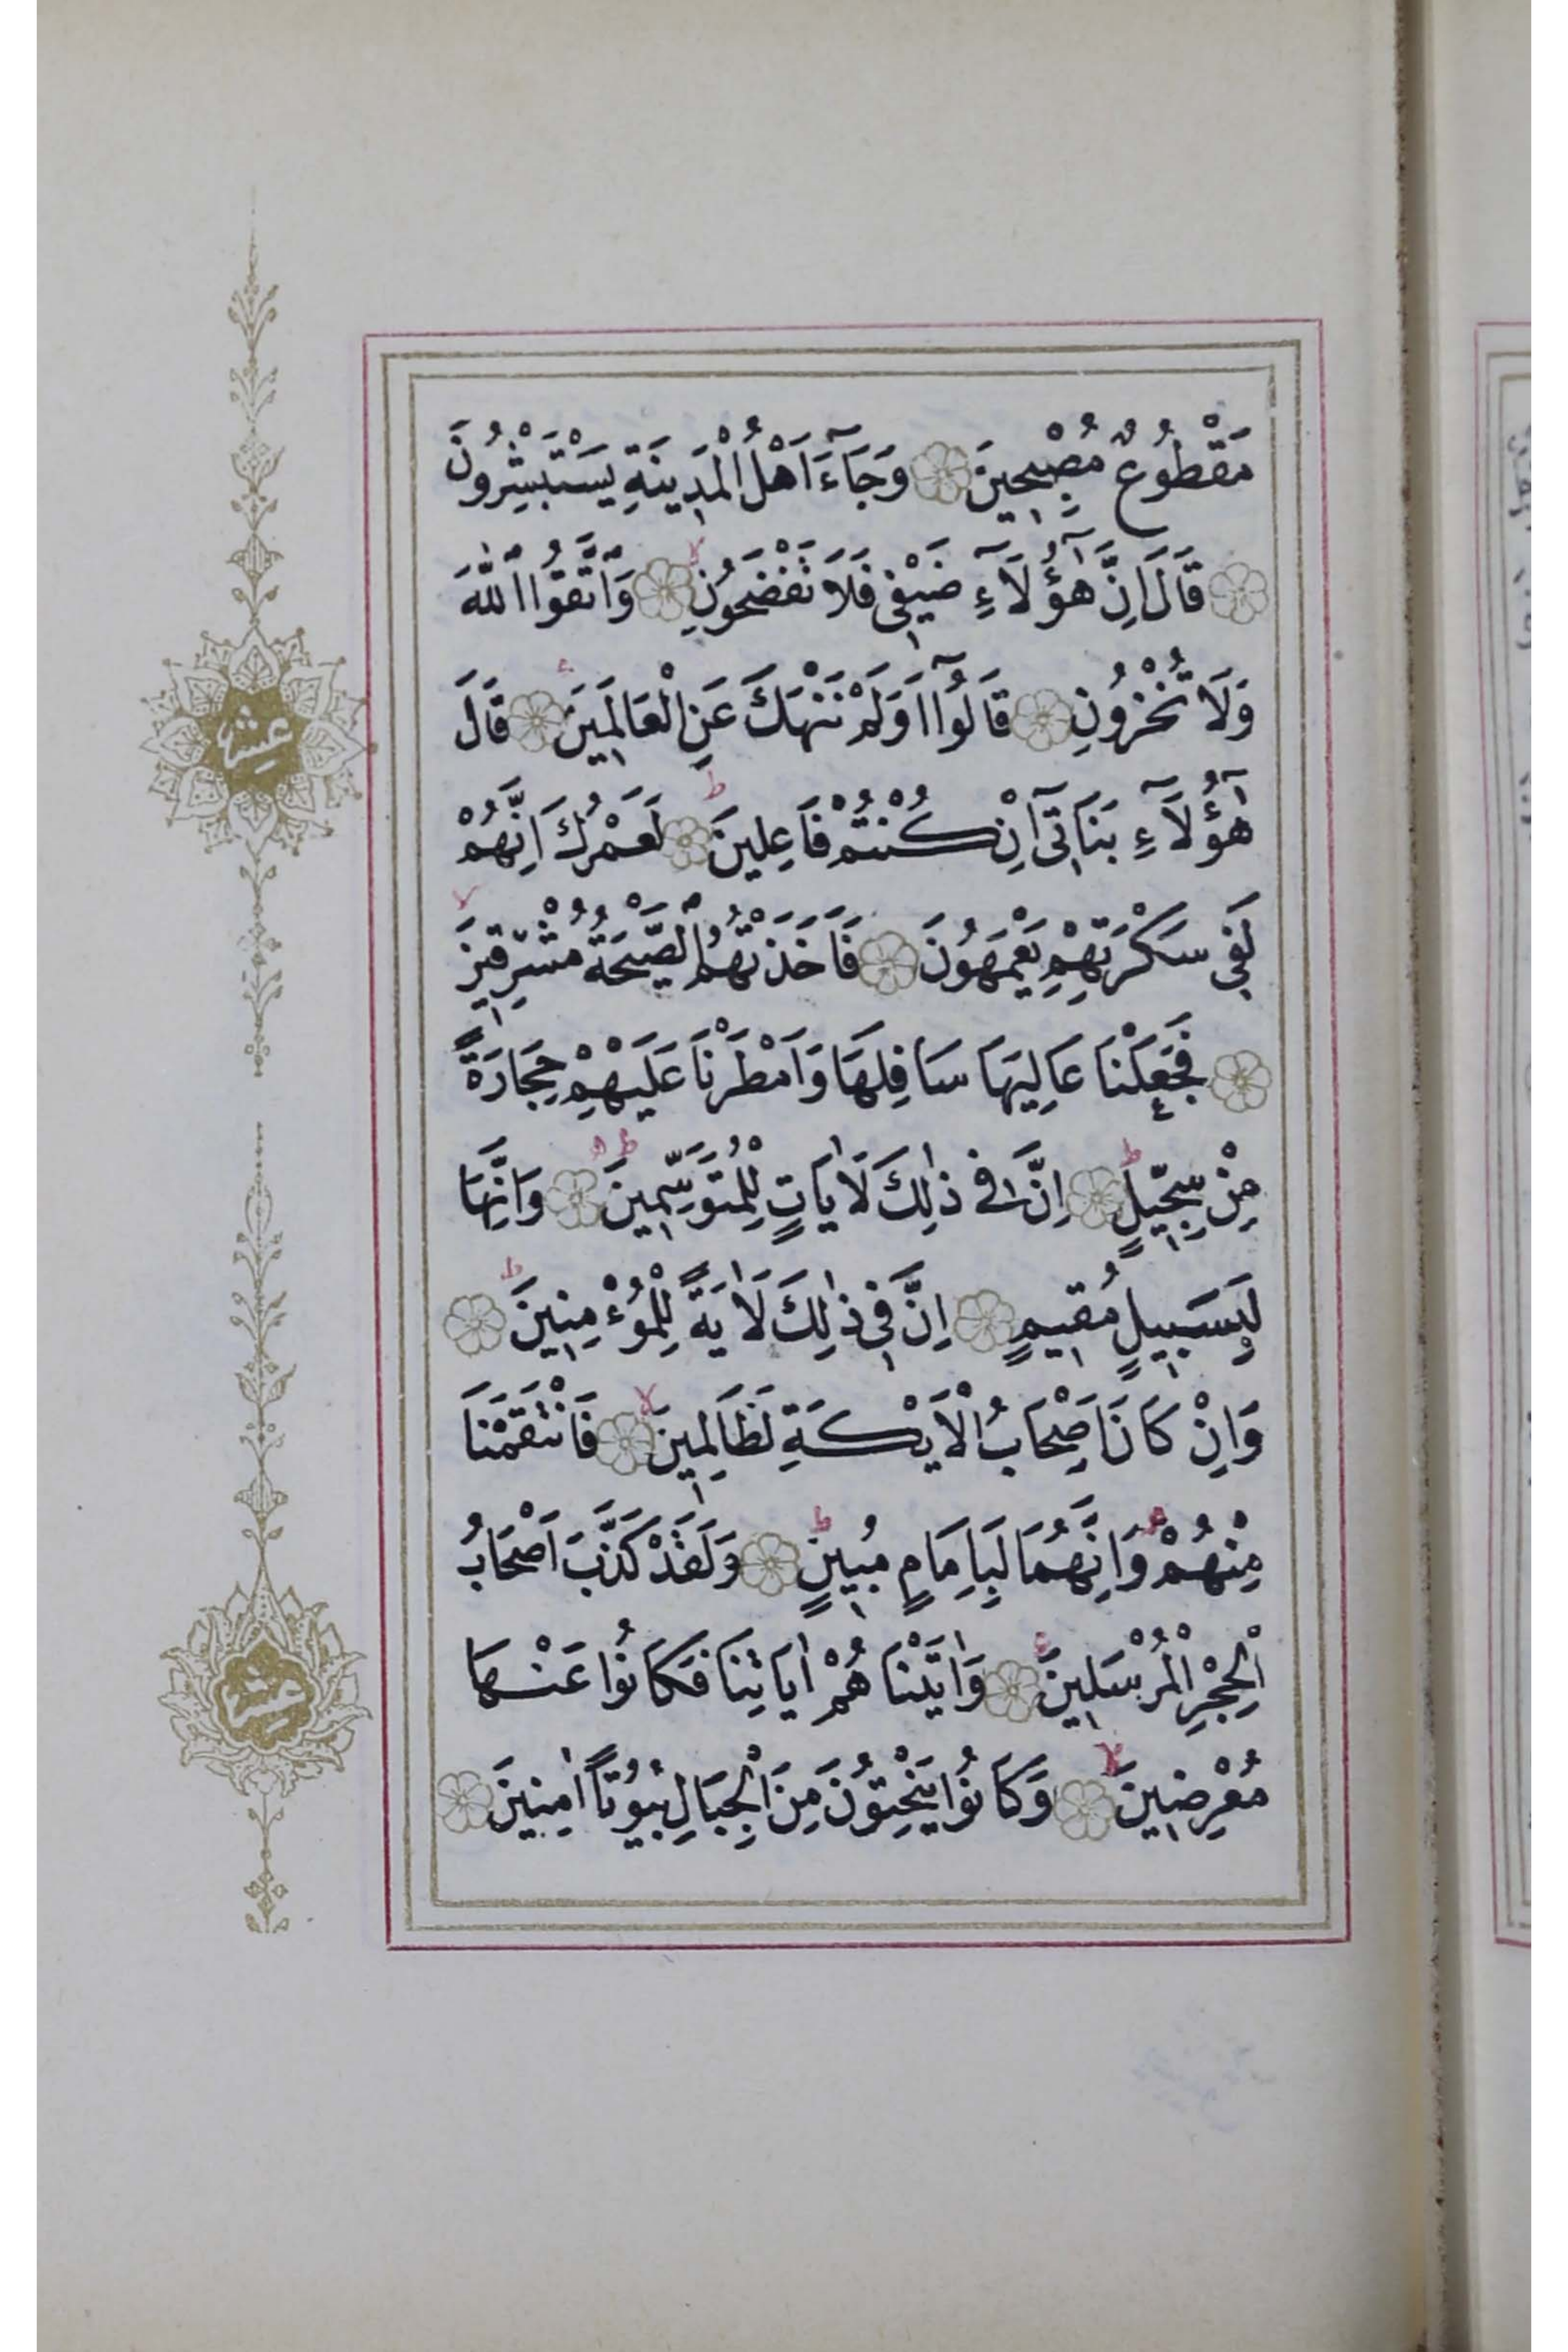 مَقْطُوعٌ مُصْبِحِينَ وَجَٓاءَ اَهْلُ الْمَدِينَةِ يَسْتَبْشِرُونَ
قَالَ اِنَّ هٰٓؤُ۬لَٓاءِ ضَيْفِى فَلَا تَفْضَحُونِ وَاتَّقُوا اللّٰهَ
وَلَا تُخْزُونِ قَالُٓوا اَوَلَمْ نَنْهَكَ عَنِ الْعَالَمِينَ قَالَ
هٰٓؤُ۬لَٓاءِ بَنَاتِٓى اِنْ كُنْتُمْ فَاعِلِينَ لَعَمْرُكَ اِنَّهُمْ
لَفِى سَكْرَتِهِمْ يَعْمَهُونَ فَاَخَذَتْهُمُ الصَّيْحَةُ مُشْرِقِينَ
فَجَعَلْنَا عَالِيَهَا سَافِلَهَا وَاَمْطَرْنَا عَلَيْهِمْ حِجَارَةً
مِنْ سِجِّيلٍ اِنَّ فِى ذٰلِكَ لَاٰيَاتٍ لِلْمُتَوَسِّمِينَ وَاِنَّهَا
لَبِسَبِيلٍ مُقِيمٍ اِنَّ فِى ذٰلِكَ لَاٰيَةً لِلْمُؤْمِنِينَ
وَاِنْ كَانَ اَصْحَابُ الْاَيْكَةِ لَظَالِمِينَ فَانْتَقَمْنَا
مِنْهُمْ وَاِنَّهُمَا لَبِاِمَامٍ مُبِينٍ وَلَقَدْ كَذَّبَ اَصْحَابُ
الْحِجْرِ الْمُرْسَلِينَ وَاٰتَيْنَاهُمْ اٰيَاتِنَا فَكَانُوا عَنْهَا
مُعْرِضِينَ وَكَانُوا يَنْحِتُونَ مِنَ الْجِبَالِ بُيُوتًا اٰمِنِينَ
عشر
عشر